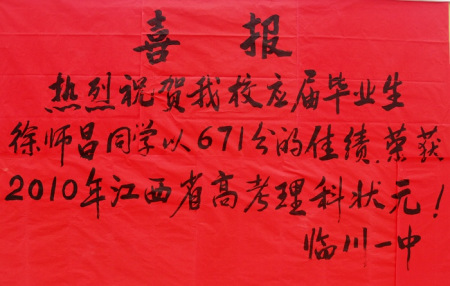 喜报
热烈祝贺我校应届毕业生
徐师昌同学以671分的佳绩,荣获
2010年江西省高考理科状元!
临川一中